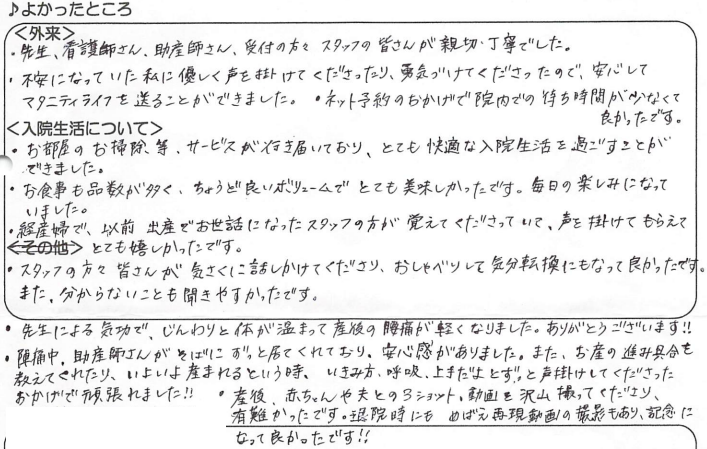 ♪よかったところ
<外来>
・先生、看護師さん、助産師さん、受付の方々 スタッフの皆さんが親切・丁寧でした。
・不安になっていた私に優しく声を掛けてくださったり、勇気づけてくださったので、安心して
マタニティライフを送ることができました。 ・ネット予約のおかげで院内での待ち時間が少なくて
良かったです。
<入院生活について>
・お部屋のお掃除等、サービスが行き届いており、とても快適な入院生活を過ごすことが
できました。
・お食事も品数が多く、ちょうど良いボリュームでとても美味しかったです。毎日の楽しみになって
いました。
・経産婦で、以前 出産でお世話になったスタッフの方が覚えてくださっていて、声を掛けてもらえて
<その他> とても嬉しかったです。
・スタッフの方々 皆さんが気さくに話しかけてくださり、おしゃべりして気分転換にもなって良かったです。
また、分からないことも聞きやすかったです。
・先生による気功で、じんわりと体が温まって産後の腰痛が軽くなりました。ありがとうございます!!
・陣痛中、助産師さんがそばにずっと居てくれており、安心感がありました。また、お産の進み具合を
教えてくれたり、いよいよ産まれるという時、いきみ方、呼吸、上手だよとずっと声掛けしてくださった
おかげで頑張れました!!
・産後、赤ちゃんや夫との3ショット、動画を沢山撮ってくださり、
有難かったです。退院時にも めばえ再現動画の撮影もあり、記念に
なって良かったです!!